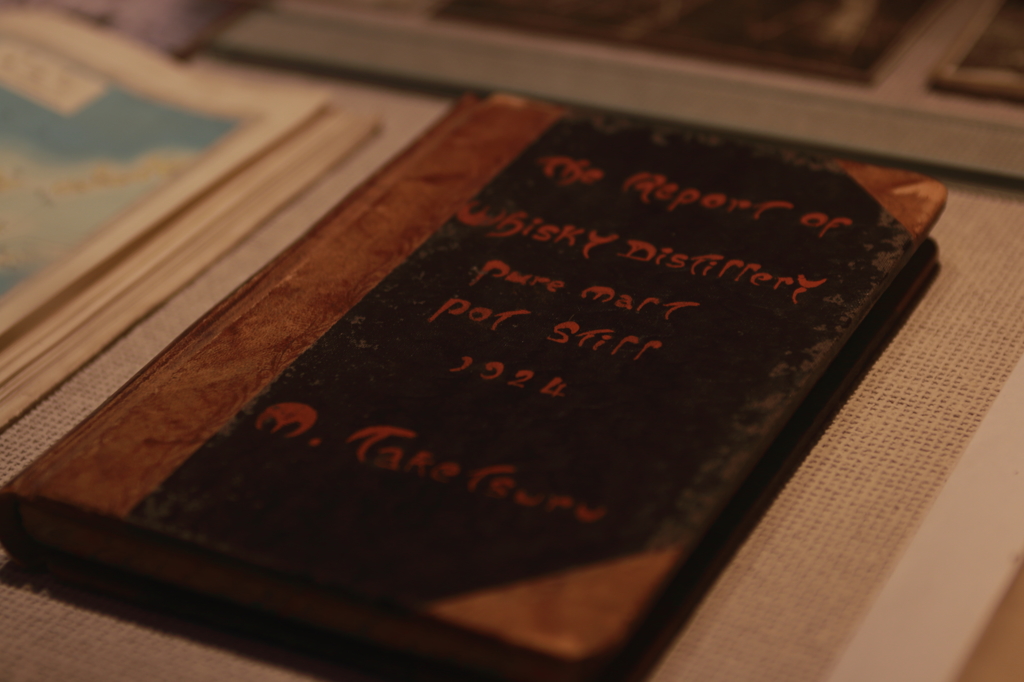 The Report of
Whisky Distillery
pure mart
pot Still
1924
M. Taketsuru